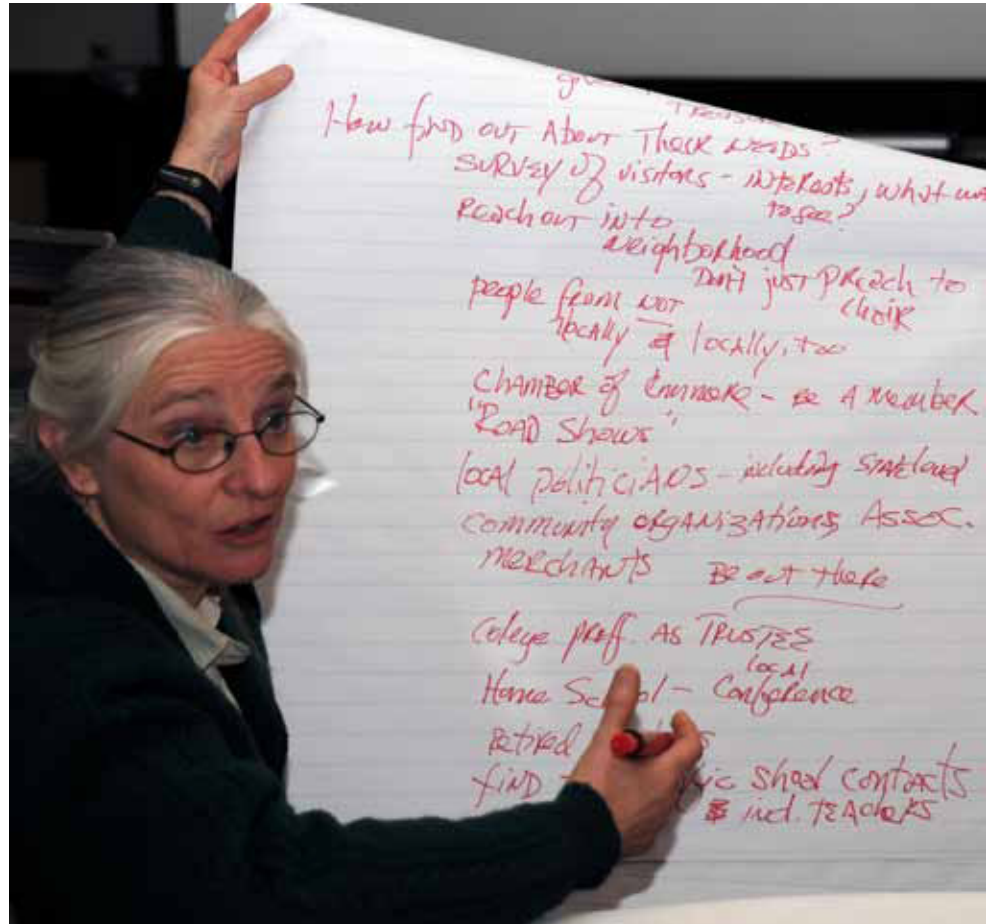 How find out About Their needs?
survey of visitors - interests, what
to see?
Reach out into
neighborhood
Don't just preach to
choir
people from not
locally & locally, too
Chamber of Commerce - Be A member
"Road Shows"
local politicians - including State
community organizations, Assoc.
merchants Be out there
College proff. As Trustee
local
Home School - Conference
Retired
find school contacts
incl. Teachers